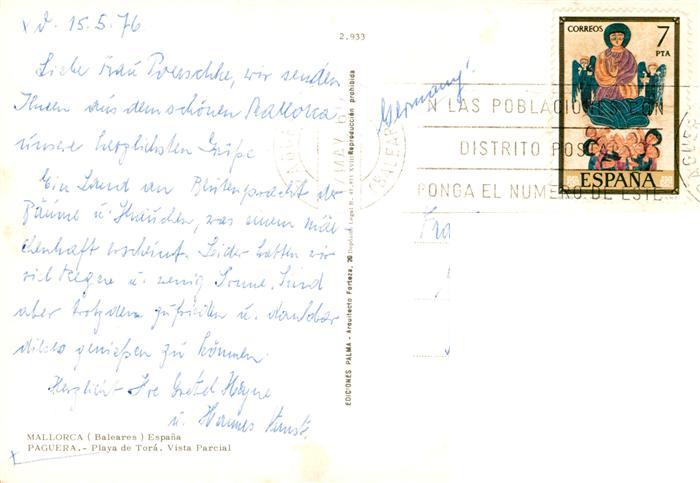 d. 15.5.76
Liebe Frau Poerschke, wir senden
Ihnen aus dem schönen Mallorca
unsere herzlichsten Grüße
Ein Land an Blütenpracht der
Bäume u. Stauden, was einem mär
chenhaft erscheint. Leider hatten wir
viel Regen u. wenig Sonne. Sind
aber trotzdem zufrieden u. dankbar
dieses genießen zu können.
Herzlichst Ihre Gretel Heyne
u. Hannes
MALLORCA ( Baleares ) España
PAGUERA.- Playa de Torá. Vista Parcial
2.933
EDICIONES PALMA - Arquitecto Forteza, 20 Reproducción prohibida
Germany!
CORREOS 7
PTA
ESPAÑA
N LAS POBLACIONES CON
DISTRITO POSTAL
PONGA EL NUMERO DE ESTE
MAY
(BALEAR
Fra